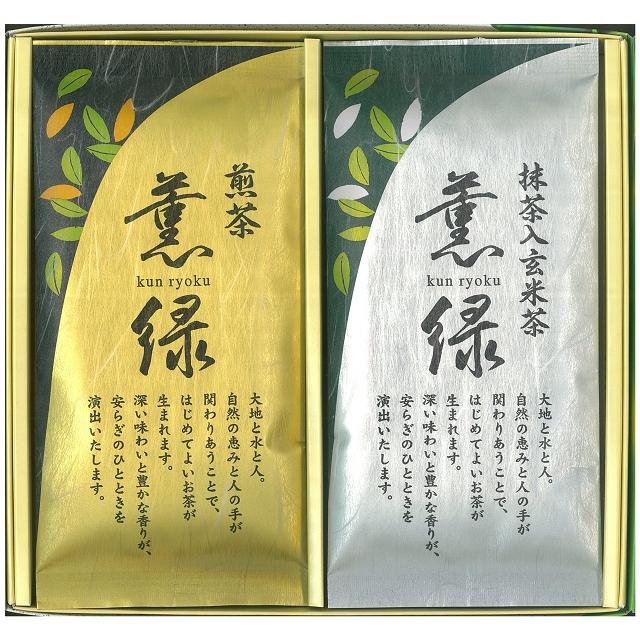 煎茶
薫
kun ryoku
緑
大地と水と人。
自然の恵みと人の手が
関わりあうことで、
はじめてよいお茶が
生まれます。
深い味わいと豊かな香りが、
安らぎのひとときを
演出いたします。
抹茶入玄米茶
薫
kun ryoku
緑
大地と水と人。
自然の恵みと人の手が
関わりあうことで、
はじめてよいお茶が
生まれます。
深い味わいと豊かな香りが、
安らぎのひとときを
演出いたします。